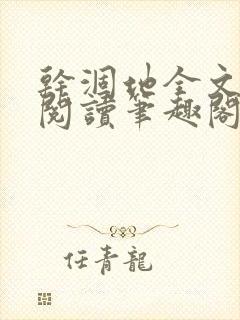 幹涸地全文
閱讀筆趣閣
任青龍